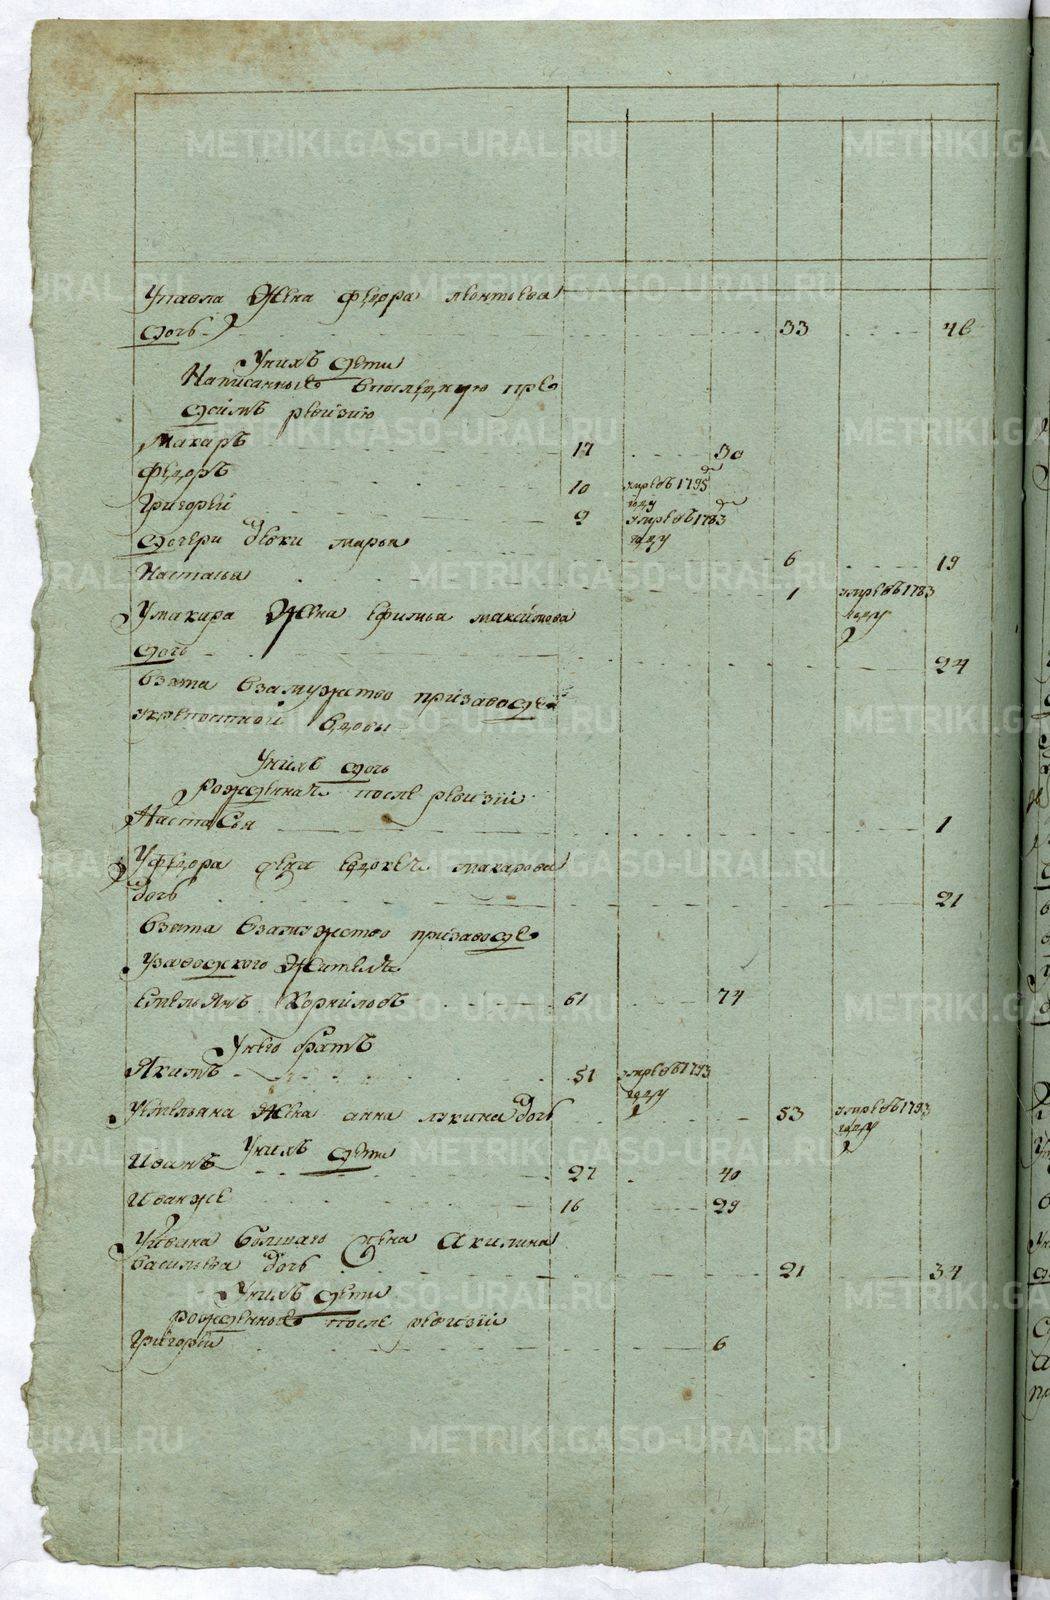 METRIKI.GASO-URAL.RU
У павла жена федора леонтьева
дочь 33 46
У нихъ дети
Написанные в последнюю пре
дсимъ ревизию
Макаръ 17 30
Федоръ 10 умре въ 1795 году
Григорей 9 умре въ 1783 году
дочери девки марья 6 19
Настасья 1 умре въ 1783 году
У макара жена ефимья максимова
дочь 24
взята взамужство призаводе
вдовы
У нихъ дочь
рожденная после ревизии
Настасья 1
У федора жена макарова
дочь 21
взята взамужство призаводе
У заводского жителя
Емельянъ Корниловъ 61 74
У него братъ
Якимъ 51 умре въ 1793 году
У емельяна жена анна лукина дочь 53 умре въ 1793 году
У нихъ дети
Иванъ 27 40
Иван же 16 29
У ивана большаго жена акилина
васильева дочь 21 34
У нихъ дети
рожденные после ревизии
Григорий 6